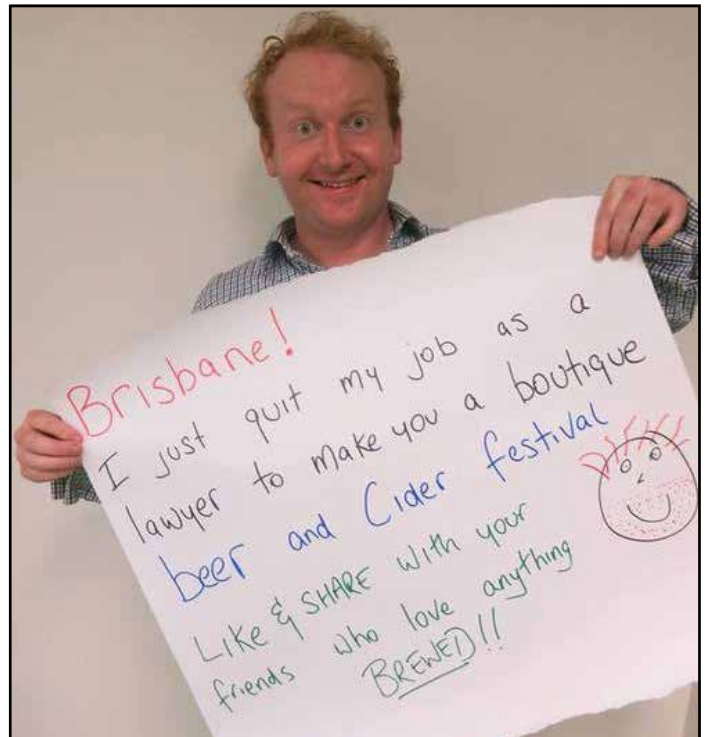 Brisbane!
I just quit my job as a
lawyer to make you a boutique
beer and Cider festival
LIKE & SHARE with your
friends who love anything
BREWED!!